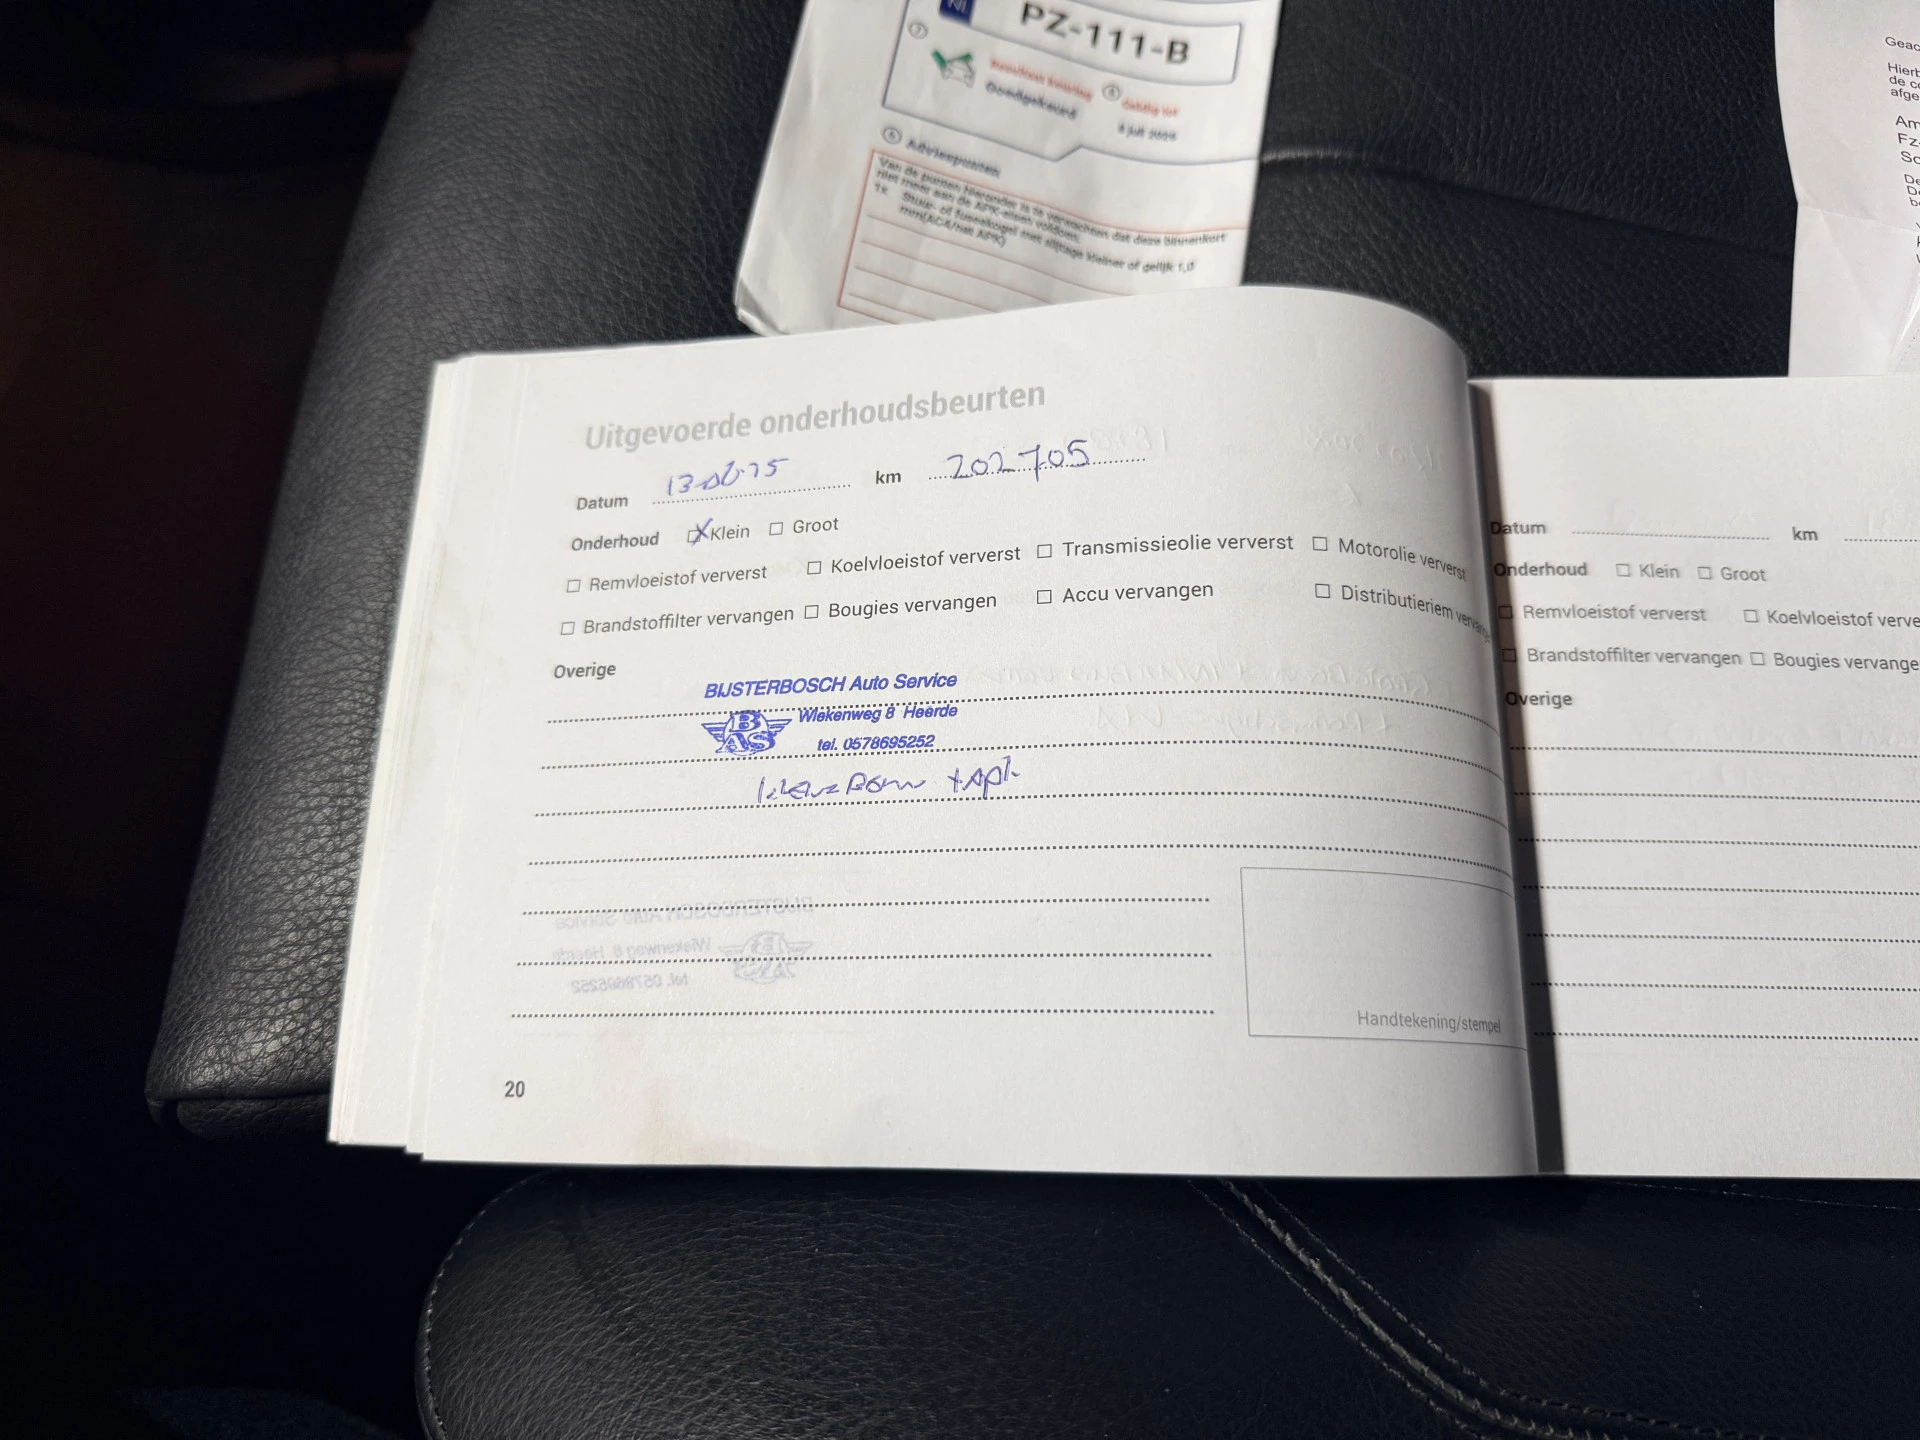 NL
PZ-111-B
7
Goedgekeurd
8
Geldig tot
6 Adviespunten
Van de punten hieronder is te verwachten dat deze binnenkort
niet meer aan de APK-eisen voldoen:
1x Stuur- of fuseekogel met slijtage kleiner of gelijk 1,0
mm(AC4/niet APK)
Geac
Hierb
de co
afge
Am
Fz
Sc
De
De
b
Uitgevoerde onderhoudsbeurten
Datum km 202705
Onderhoud X Klein Groot
Remvloeistof ververst Koelvloeistof ververst Transmissieolie ververst Motorolie ververst
Brandstoffilter vervangen Bougies vervangen Accu vervangen Distributieriem vervange
Overige
BIJSTERBOSCH Auto Service
BAS Wiekenweg 8 Heerde
tel. 0578695252
+ apk
Handtekening/stempel
20
Datum km
Onderhoud Klein Groot
Remvloeistof ververst Koelvloeistof verve
Brandstoffilter vervangen Bougies vervange
Overige